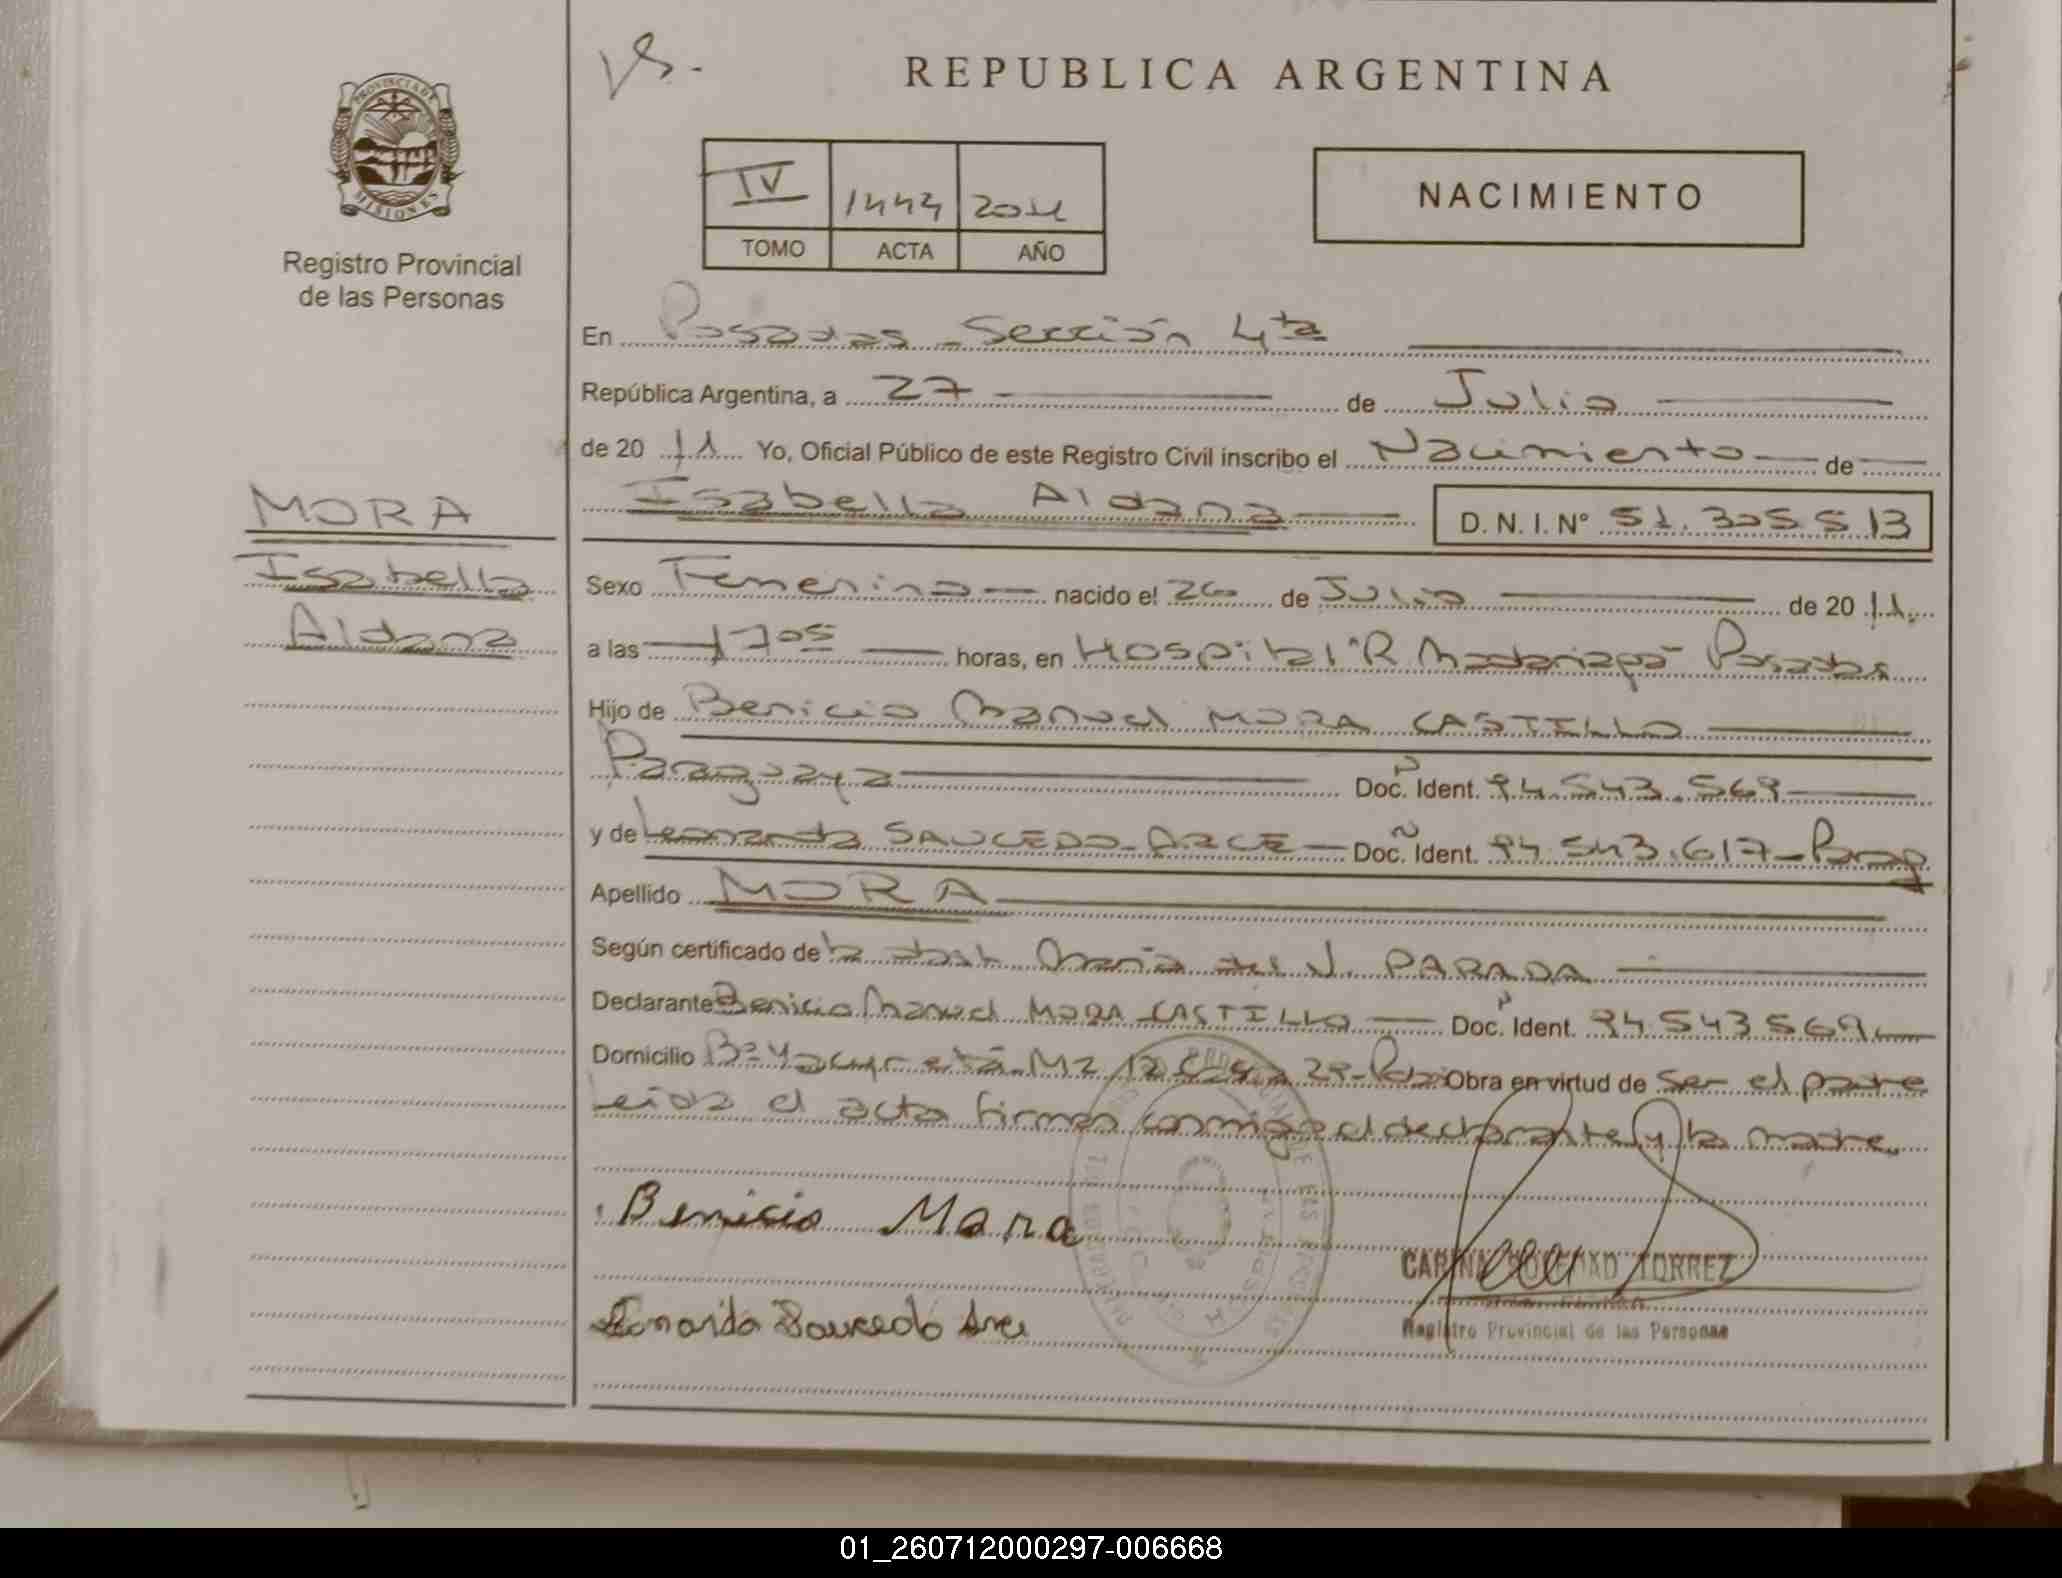 vs.
REPUBLICA ARGENTINA
PROVINCIA DE MISIONES
Registro Provincial
de las Personas
IV 1443 2011
TOMO ACTA AÑO
NACIMIENTO
En Posadas - Sección 4ta
República Argentina, a 27 de Julio
de 20 11 Yo, Oficial Público de este Registro Civil inscribo el Nacimiento de
Isabella Aldana D. N. I. N° 51.305513
MORA
Isabella
Aldana
Sexo Femenino nacido el 26 de Julio de 20 11.
a las 1705 horas, en Hospital "R Madariaga" Posadas
Hijo de Benicio Manuel MORA CASTILLO
Paraguaya Doc. Ident. 94.543.569
y de Leonarda SAUCEDO ARCE Doc. Ident. 94 543.617 - Parag
Apellido MORA
Según certificado de la obst. María del J. PARADA
Declarante Benicio Manuel MORA CASTILLO Doc. Ident. 94.543569
Domicilio B° Yacyretá Mz 12 Casa 29 - Pdas Obra en virtud de ser el padre
Leída el acta firman conmigo el declarante y la madre.
Benicio Mora
Leonarda Saucedo Arce
CARINA SOLEDAD TORREZ
Registro Provincial de las Personas
01_260712000297-006668